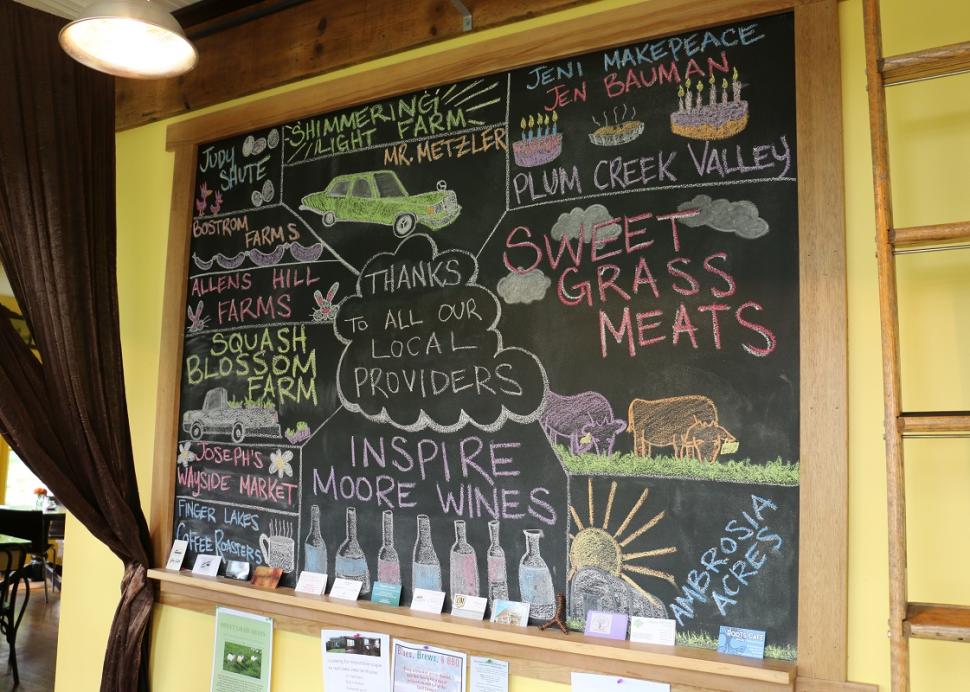 JUDY
SHUTE
SHIMMERING
LIGHT FARM
MR. METZLER
JENI MAKEPEACE
JEN BAUMAN
PLUM CREEK VALLEY
BOSTROM
FARMS
ALLENS HILL
FARMS
SQUASH
BLOSSOM
FARM
JOSEPH'S
WAYSIDE MARKET
FINGER LAKES
COFFEE ROASTERS
THANKS
TO ALL OUR
LOCAL
PROVIDERS
SWEET
GRASS
MEATS
INSPIRE
MOORE WINES
AMBROSIA
ACRES
ROOTS CAFE
Blues, Brews, & BBQ